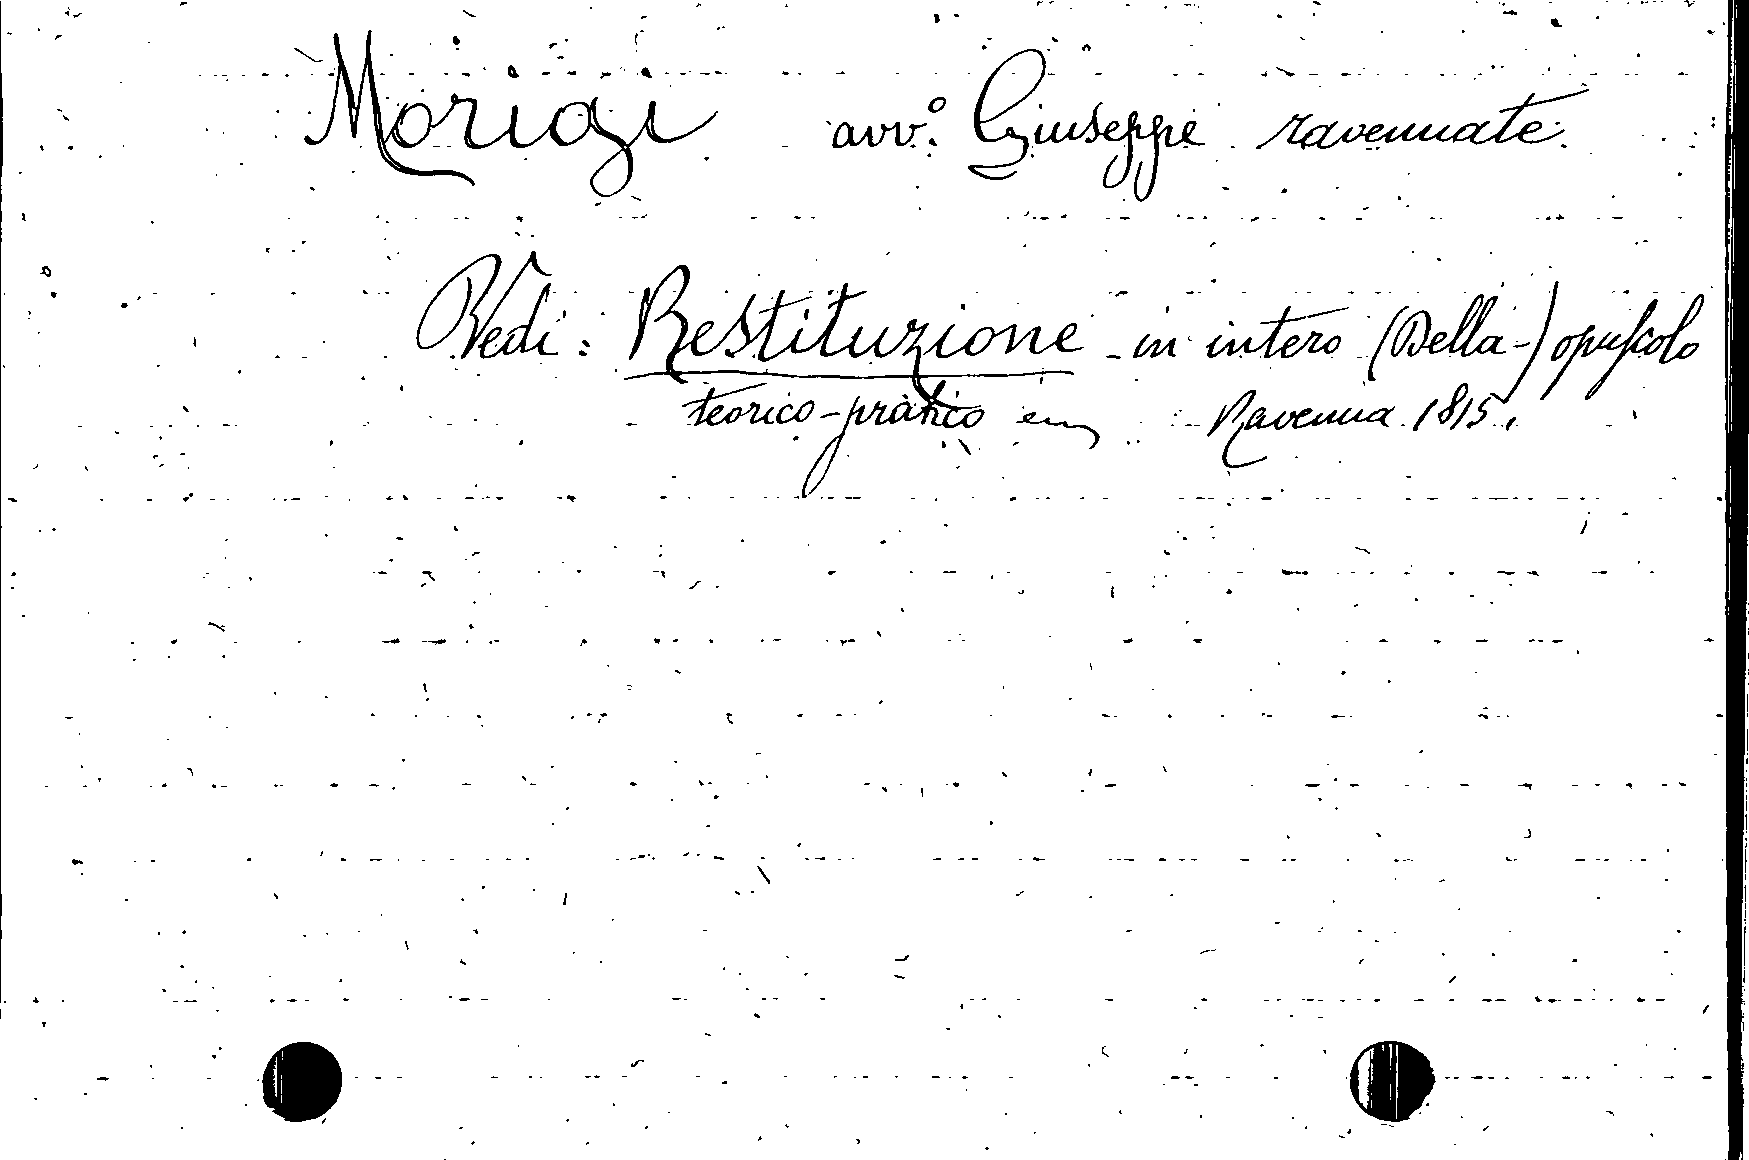 Morigi avv.° Giuseppe ravennate.
Vedi: Restituzione in intero (Della-) opuscolo
teorico-pratico Ravenna 1815.